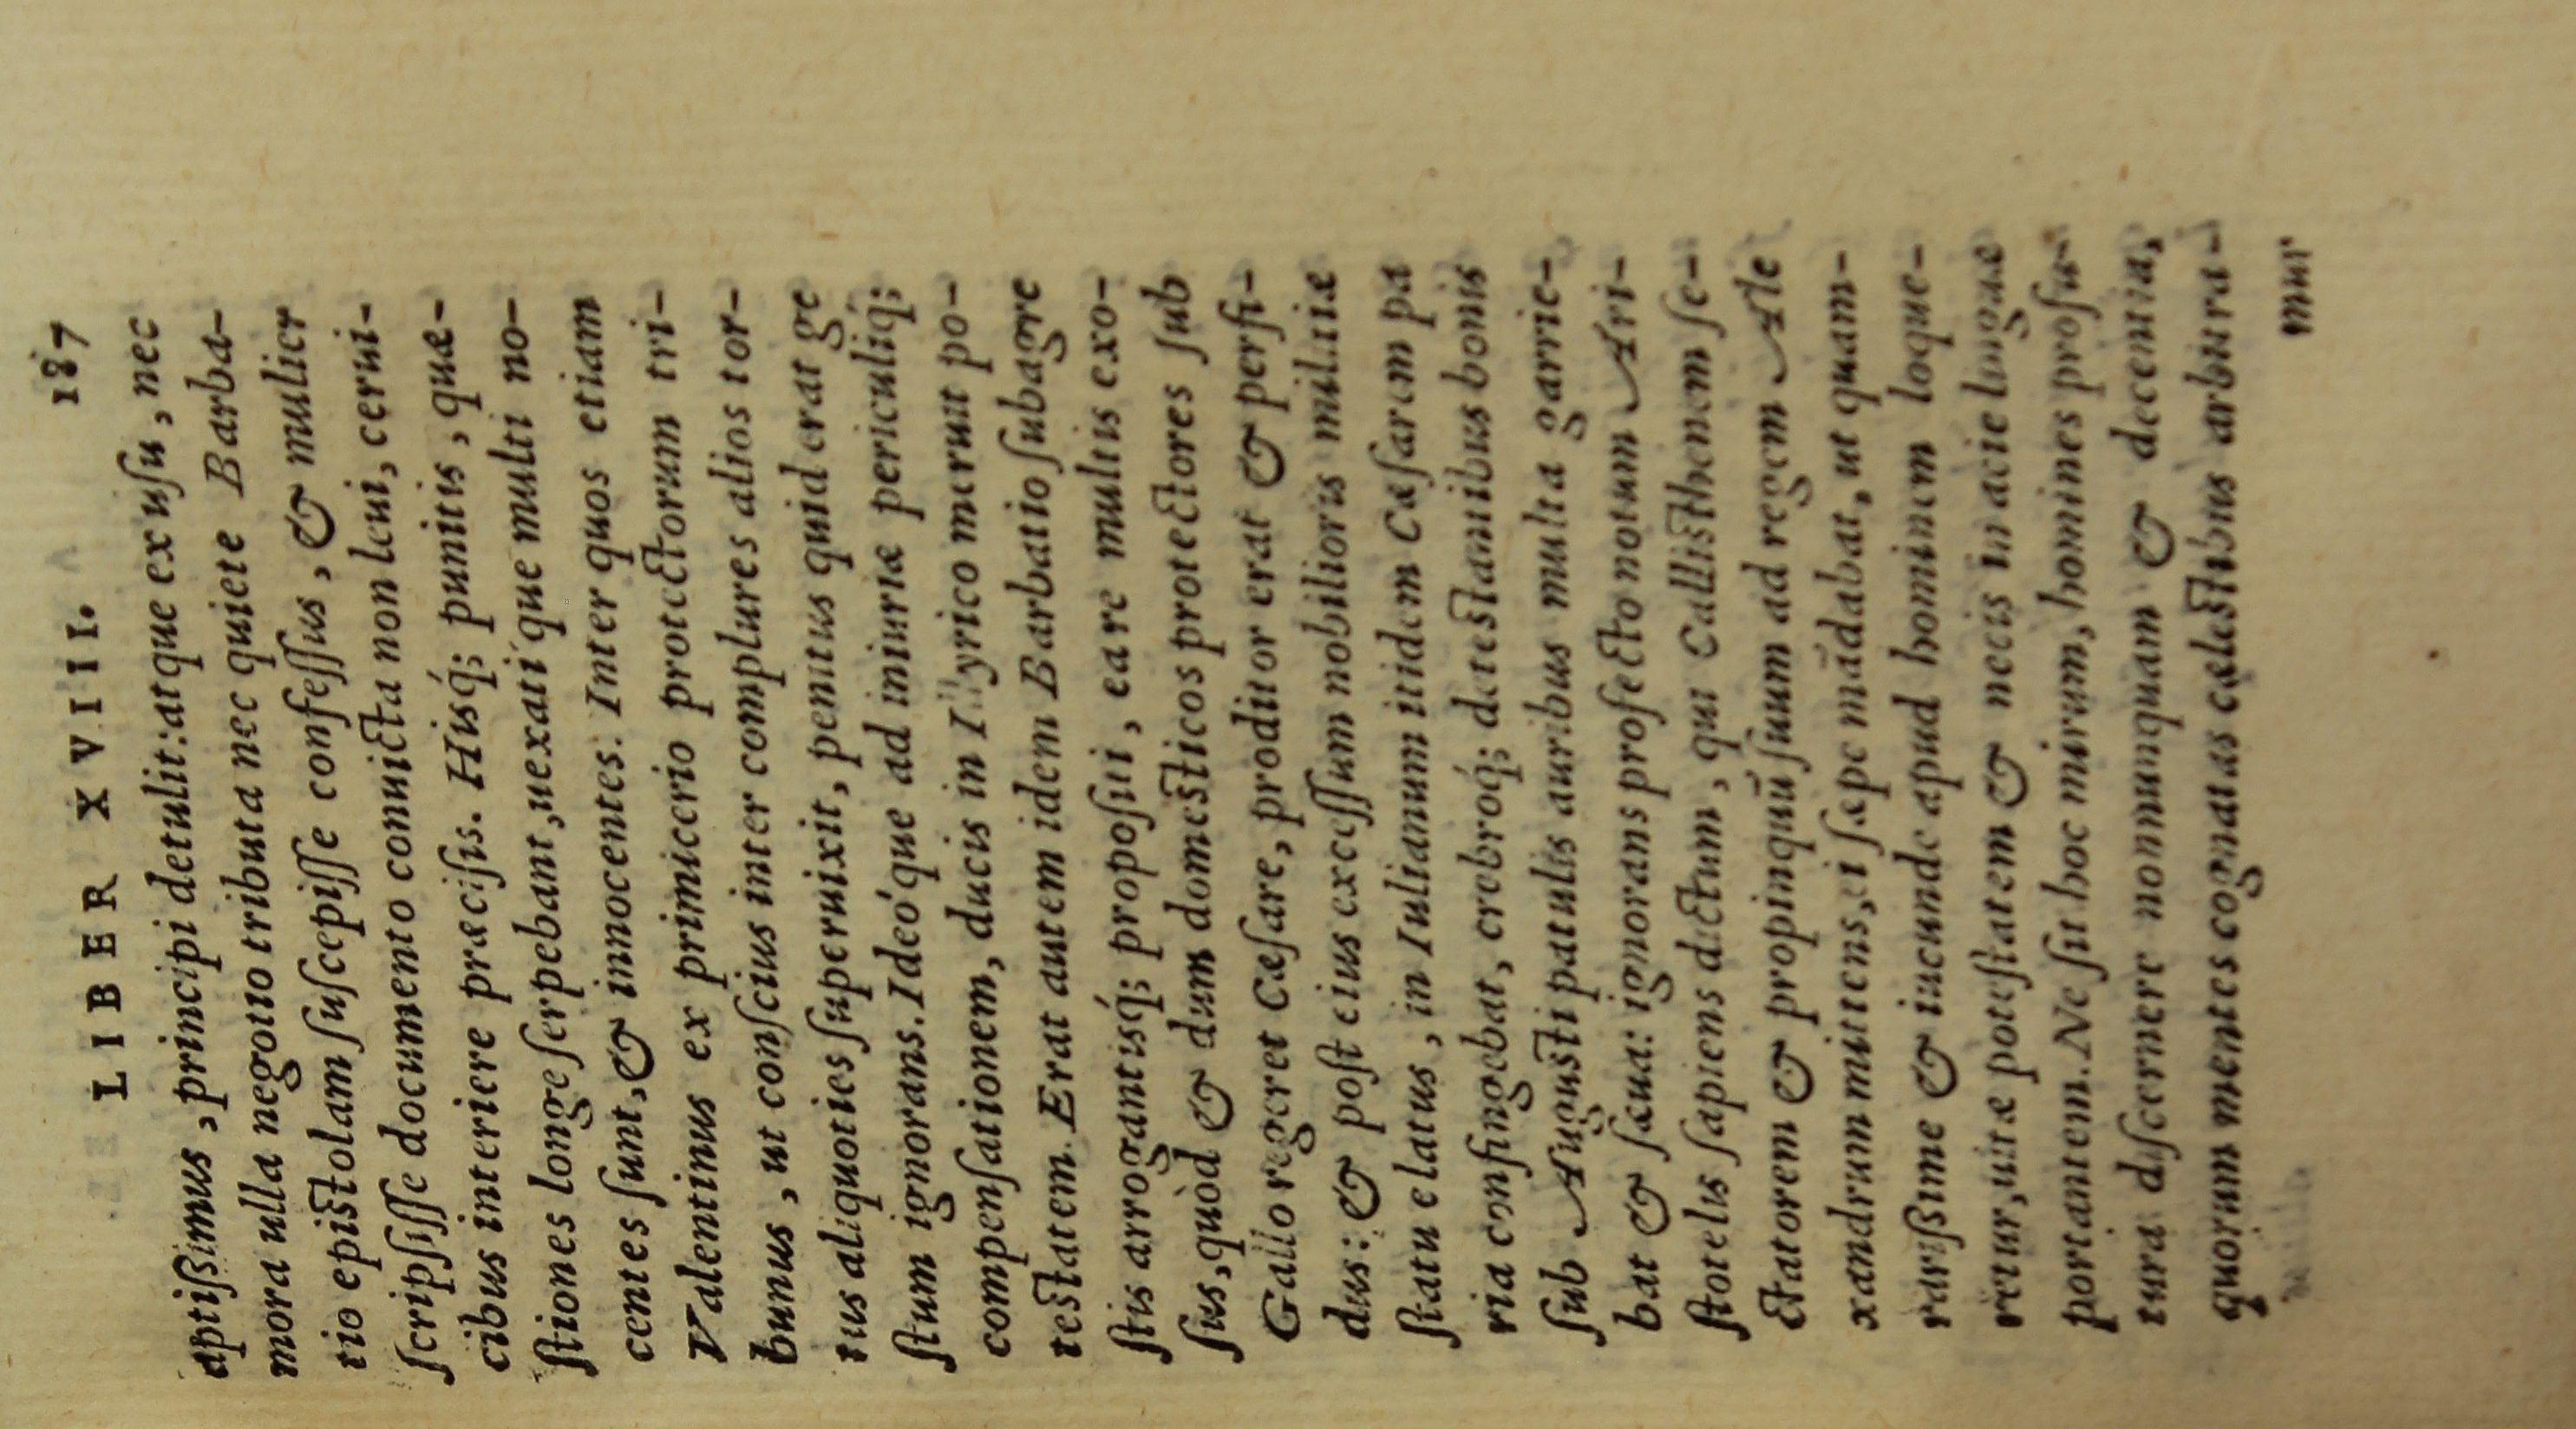 LIBER XVIII. 187
aptißimus, principi detulit: atque ex uſu, nec
mora ulla negotio tributa nec quiete Barba-
tio epiſtolam ſuſcepiſſe confeſſus, & mulier
ſcripſiſſe documento conuicta non leui, cerui-
cibus interiere præciſis. Hisq́; punitis, quæ-
ſtiones longe ſerpebant, uexati que multi no-
centes ſunt, & innocentes. Inter quos etiam
Valentinus ex primicerio protectorum tri-
bunus, ut conſcius inter complures alios tor-
tus aliquoties ſuperuixit, penitus quid erat ge
ſtum ignorans. Ideo'que ad iniuriæ periculiq́;
compenſationem, ducis in Illyrico meruit po-
teſtatem. Erat autem idem Barbatio ſubagre
ſtis arrogantisq́; propoſiti, ea re multis exo-
ſus, quòd & dum domeſticos protectores ſub
Gallo regeret Cæſare, proditor erat & perfi-
dus: & poſt eius exceſſum nobilioris militiæ
ſtatu elatus, in Iulianum itidem Cæſarem pa
ria confingebat, crebroq́; deteſtantibus bonis
ſub Auguſti patulis auribus multa garrie-
bat & ſæua: ignorans profecto notum Ari-
ſtotelis ſapiens dictum, qui Calliſthenem ſe-
ctatorem & propinquū ſuum ad regem Ale
xandrum mittens, ei ſæpe mādabat, ut quam-
rarißime & iucunde apud hominem loque-
retur, uitæ poteſtatem & necis in acie linguæ
portantem. Ne ſit hoc mirum, homines profu-
tura diſcernere nonnunquam & decentia,
quorum mentes cognatas cæleſtibus arbitra-
mur